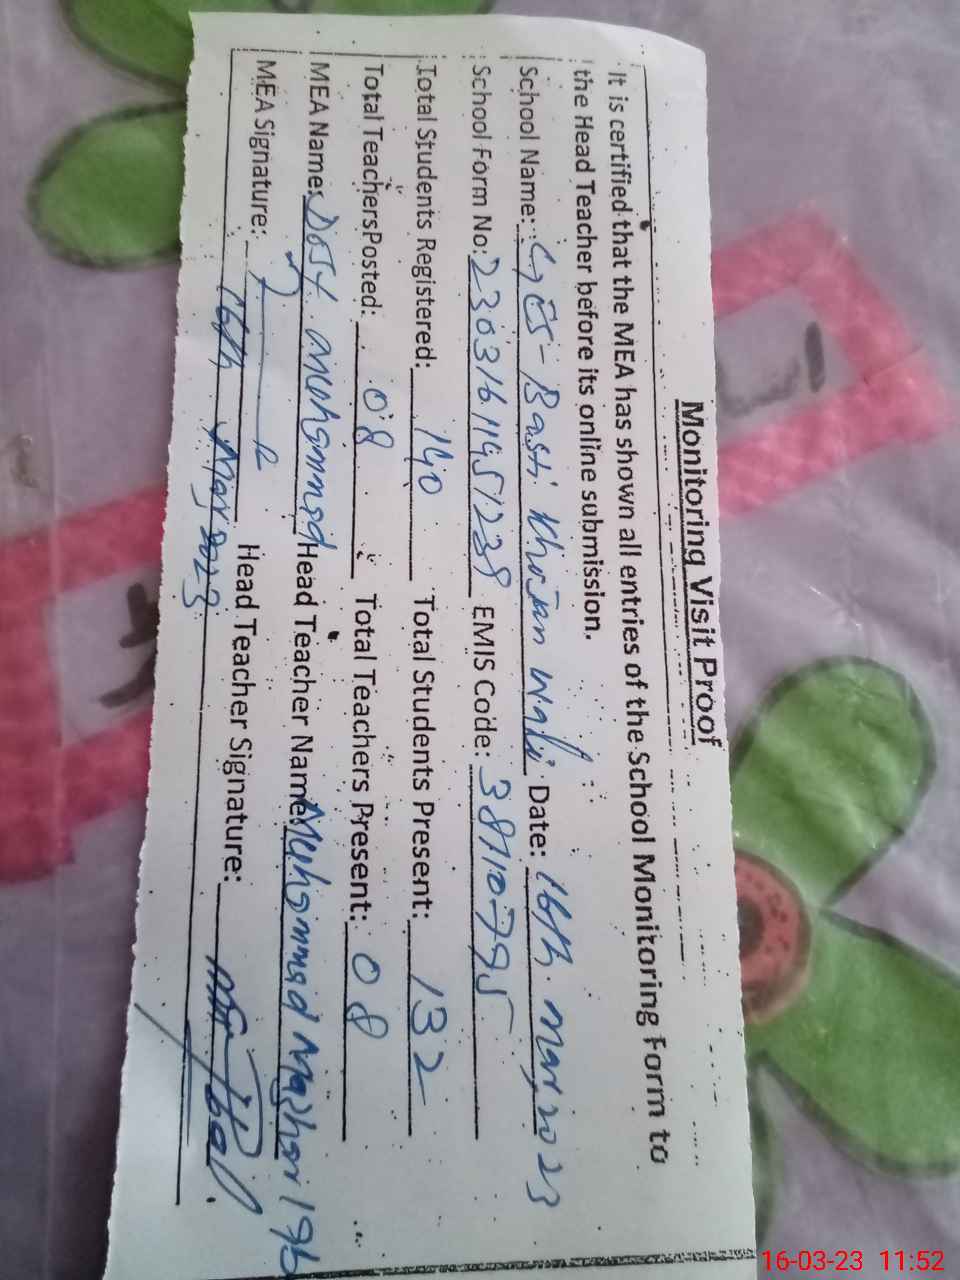 Monitoring Visit Proof
It is certified that the MEA has shown all entries of the School Monitoring Form to
the Head Teacher before its online submission.
School Name: GES-Basti Khosan Wali Date: 16th. Mar, 2023
School Form No: 23031611951238 EMIS Code: 38110795
Total Students Registered: 140 Total Students Present: 132
Total Teachers Posted: 08 Total Teachers Present: 08
MEA Name: Dost Muhammad Head Teacher Name: Muhammad Mazhar Iqb
MEA Signature: Head Teacher Signature:
16th Mar 2023
16-03-23 11:52